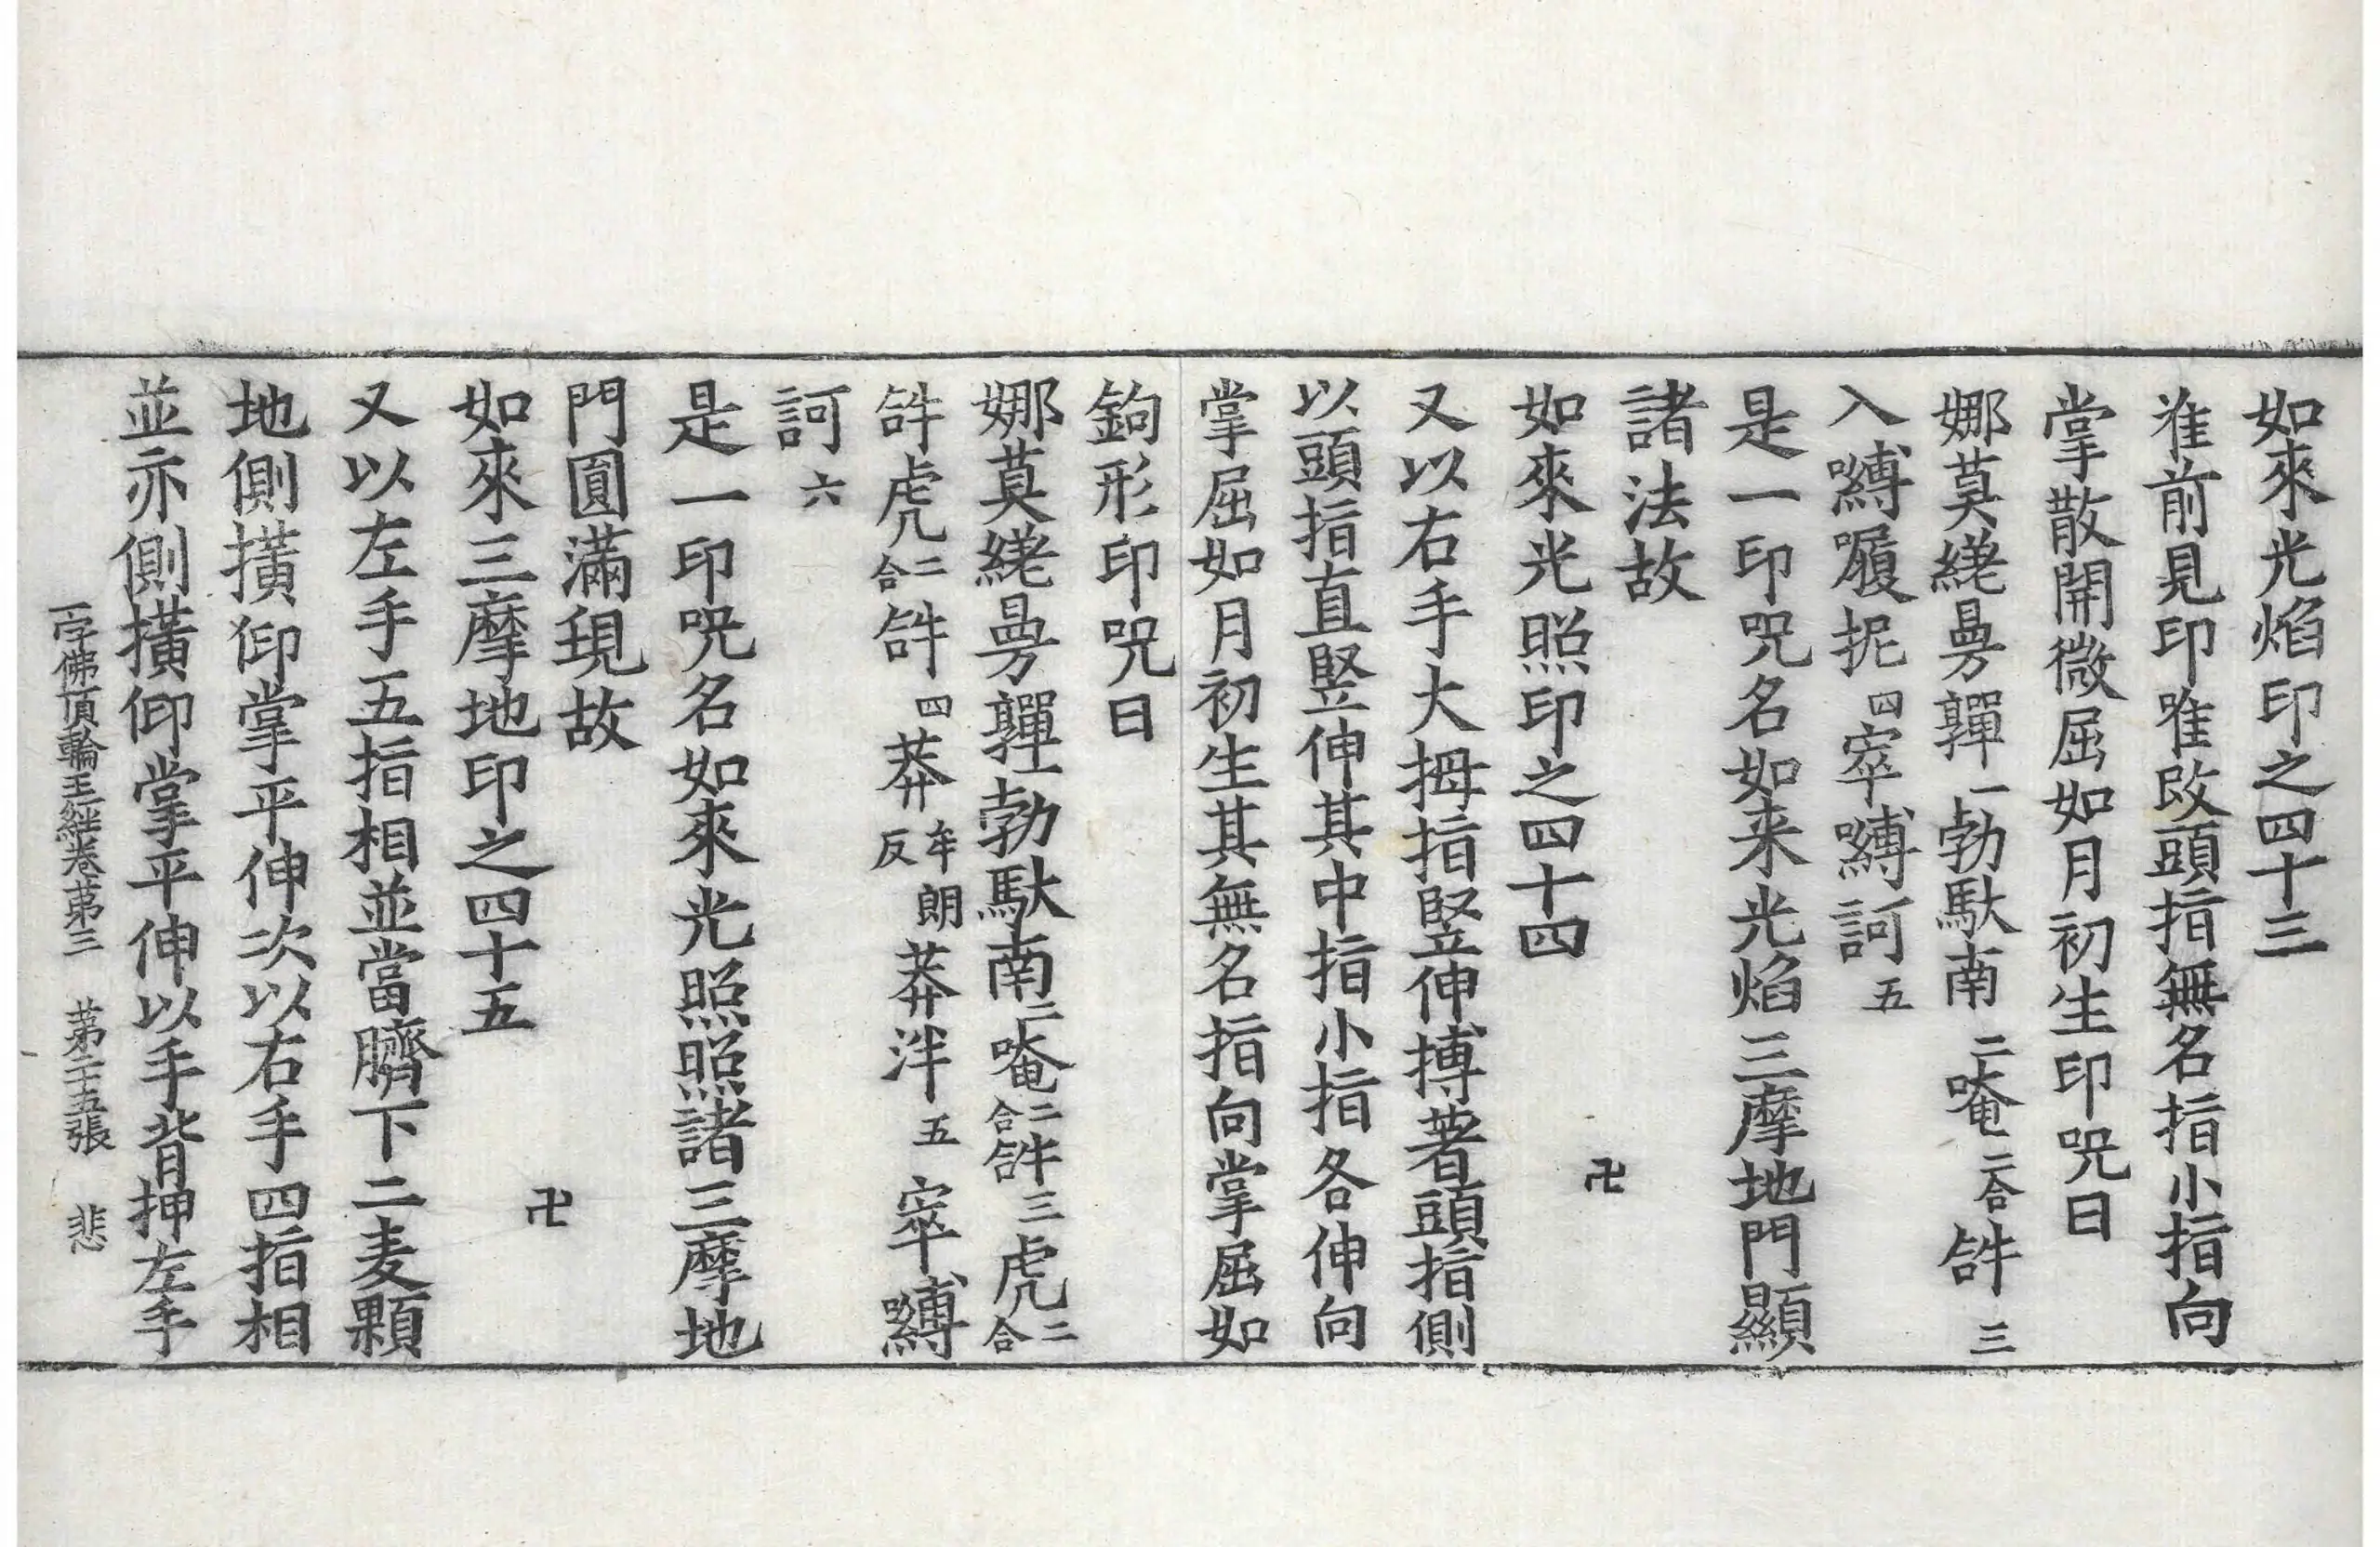 如來光焰印之四十三
准前見印唯改頭指無名指小指向
掌散開微屈如月初生印咒曰
娜莫縒曼𩏩一勃馱南二唵二合𤙖三
入嚩囉抳四窣嚩訶五
是一印咒名如来光焰三摩地門顯
諸法故
卍
如來光照印之四十四
又以右手大拇指竪伸搏著頭指側
以頭指直竪伸其中指小指各伸向
掌屈如月初生其無名指向掌屈如
鉤形印咒曰
娜莫縒曼𩏩一勃馱南二唵二合𤙖三虎二合
𤙖虎二合𤙖四莽牟朗反莽泮五窣嚩
訶六
是一印咒名如來光照照諸三摩地
門圓滿現故
卍
如來三摩地印之四十五
又以左手五指相並當臍下二麦顆
地側撗仰掌平伸次以右手四指相
並亦側撗仰掌平伸以手背押左手
一字佛頂輪王經卷苐三 苐二十五張 悲